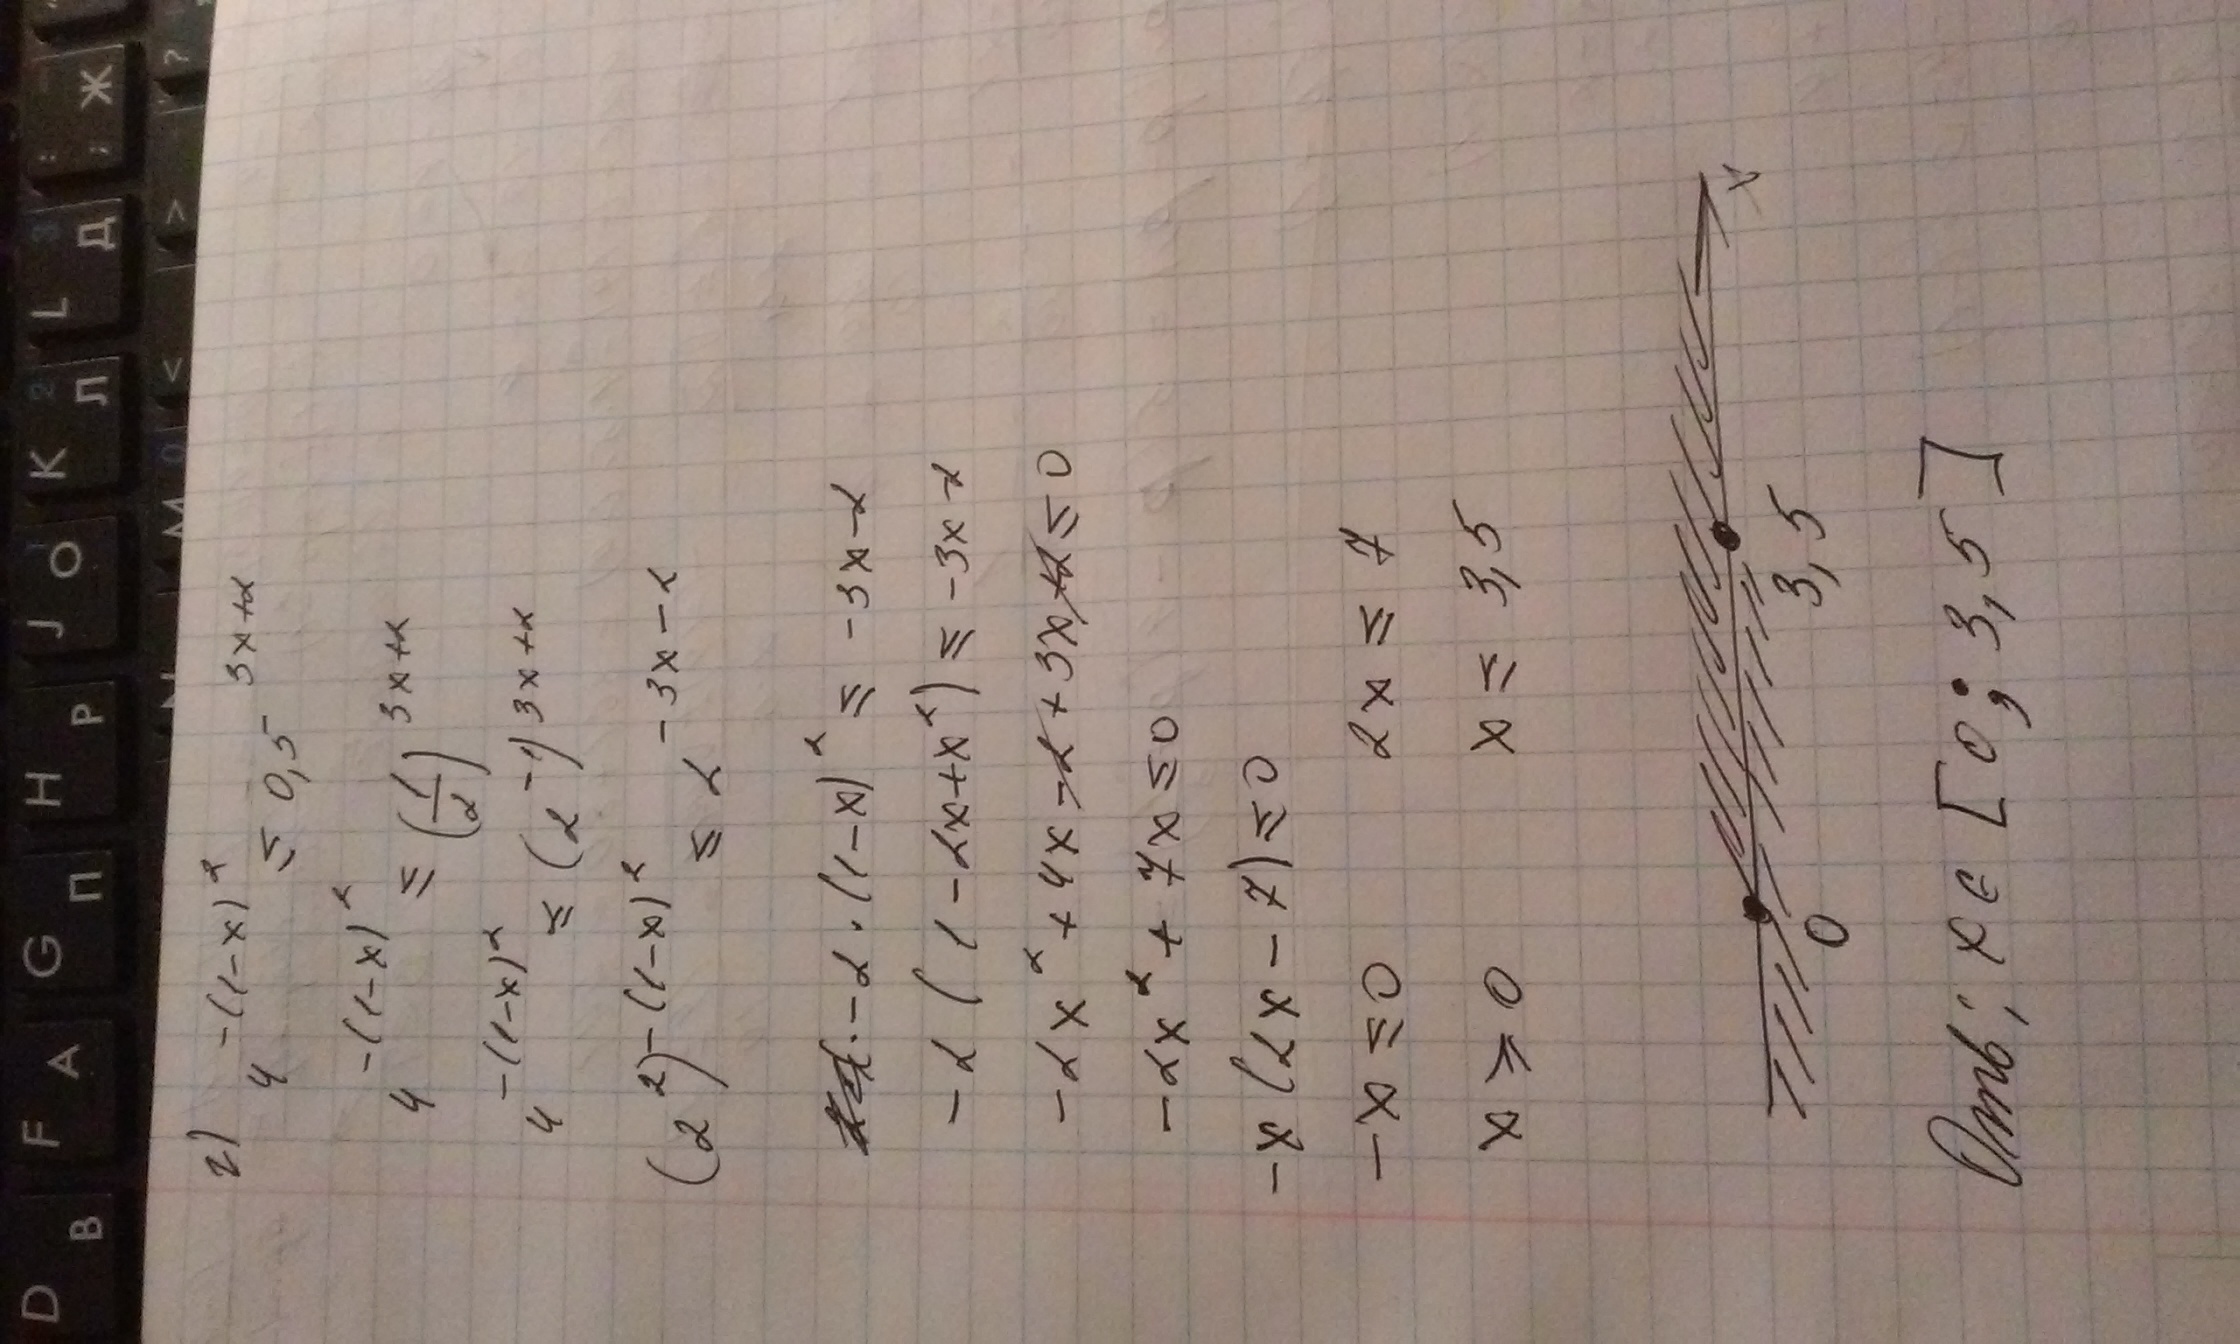 D F G H J K L : ;
В А П Р О Л Д Ж
N M < > ?
2) 4^{-(1-x)^2} ≤ 0,5^{3x+2}
4^{-(1-x)^2} ≤ (1/2)^{3x+2}
4^{-(1-x)^2} ≤ (2^{-1})^{3x+2}
(2^2)^{-(1-x)^2} ≤ 2^{-3x-2}
-2·(1-x)^2 ≤ -3x-2
-2(1-2x+x^2) ≤ -3x-2
-2x^2+4x-2+3x+2≤0
-2x^2+7x≤0
-x(2x-7)≤0
-x≤0 2x≤7
x≥0 x≤3,5
0 3,5 x
Отв; x∈[0;3,5]